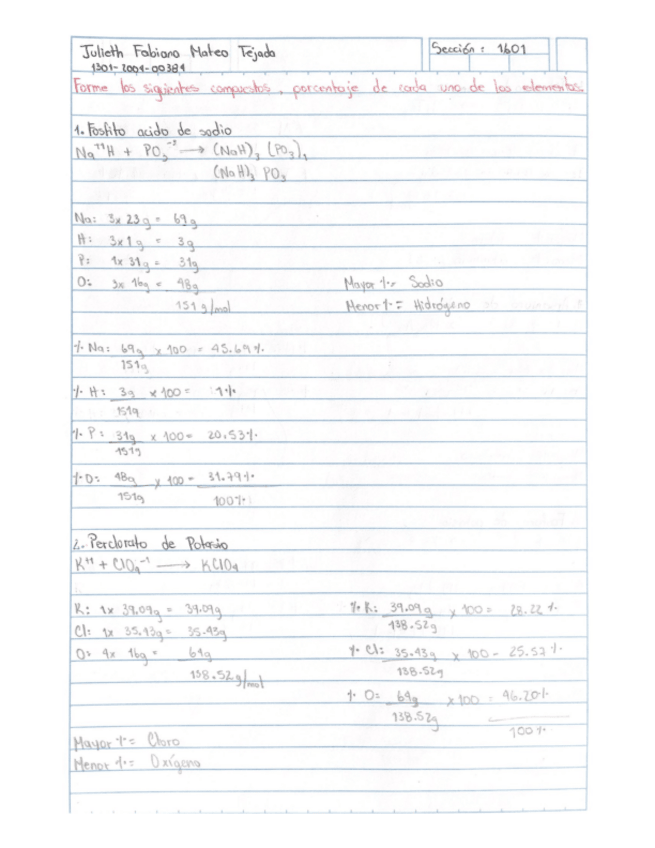 Julieth Fabiana Mateo Tejada
Sección: 1601
1301-2004-00381
Forme los siguientes compuestos, porcentaje de cada uno de los elementos
1. Fosfito acido de sodio
Na⁺¹H + PO₃⁻³ → (NaH)₃ (PO₃)₁
(NaH)₃ PO₃
Na: 3x 23g = 69g
H: 3x1g = 3g
P: 1x 31g = 31g
O: 3x 16g = 48g
151 g/mol
Mayor % = Sodio
Menor % = Hidrógeno
% Na: 69g/151g x 100 = 45.69%
% H: 3g/151g x 100 = 1%
% P: 31g/151g x 100 = 20.53%
% O: 48g/151g x 100 = 31.79%
100%
2. Perclorato de Potasio
K⁺¹ + ClO₄⁻¹ → KClO₄
K: 1x 39.09g = 39.09g
Cl: 1x 35.43g = 35.43g
O: 4x 16g = 64g
138.52g/mol
% K: 39.09g/138.52g x 100 = 28.22%
% Cl: 35.43g/138.52g x 100 = 25.57%
% O: 64g/138.52g x 100 = 46.20%
100%
Mayor % = Cloro
Menor % = Oxígeno